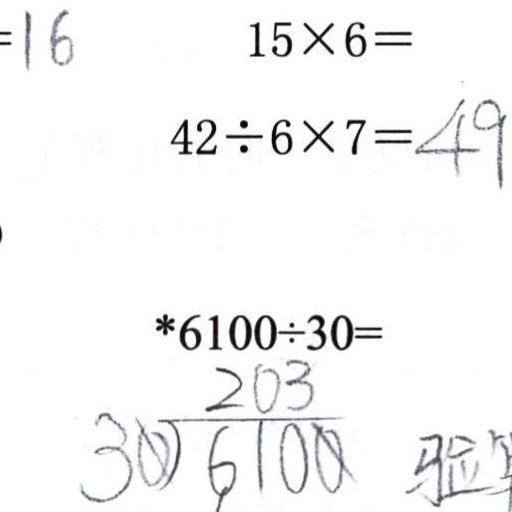 =16 15×6=
42÷6×7=49
)
*6100÷30=
203
30)6100 验算